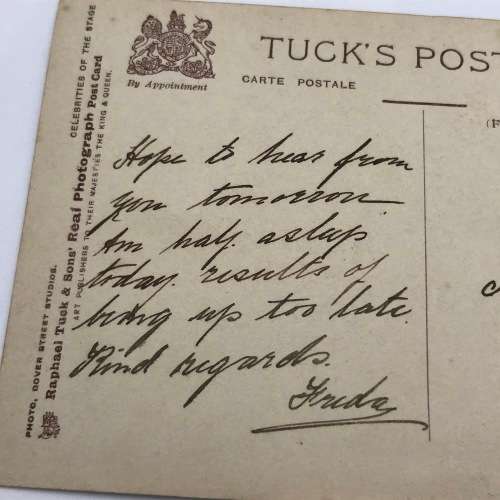 TUCK'S POST
CARTE POSTALE
By Appointment
CELEBRITIES OF THE STAGE
Raphael Tuck & Sons' Real Photograph Post Card
ART PUBLISHERS TO THEIR MAJESTIES THE KING & QUEEN.
PHOTO, DOVER STREET STUDIOS.
Hope to hear from
you tomorrow
Am half asleep
today. results of
being up too late
Kind regards.
Freda